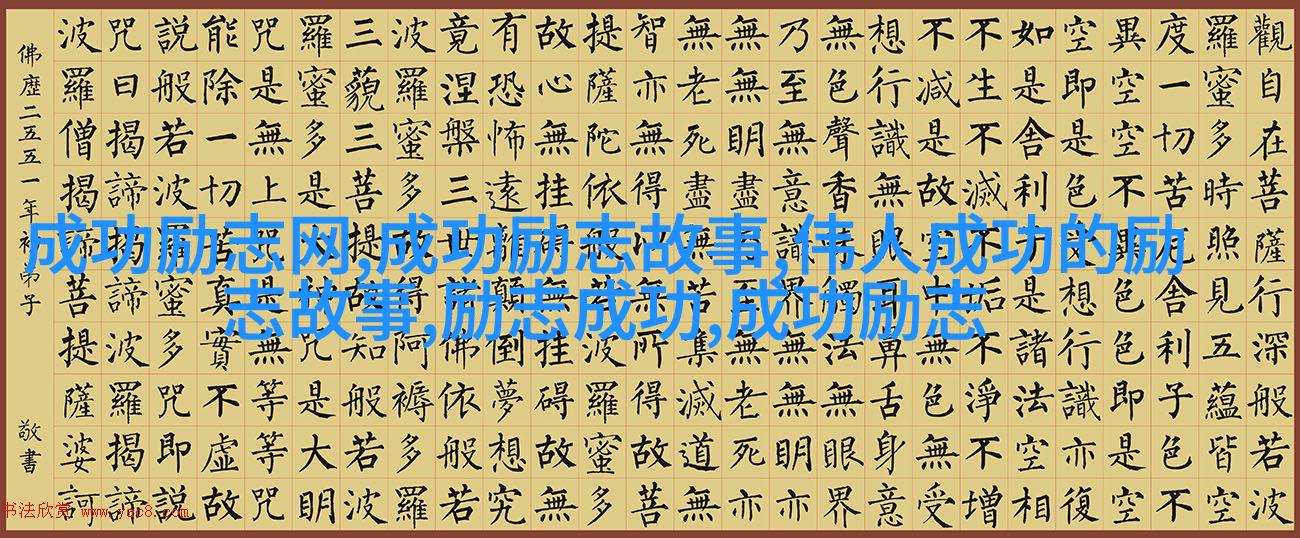 成功励志网,成功励志故事,伟人成功的励
志故事,励志成功,成功励志
觀自在菩薩行深般若波
羅蜜多時照見五蘊皆空
度一切苦厄舍利子色不
異空空不異色色即是空
空即是色受想行識亦復
如是舍利子是諸法空相
不生不滅不垢不淨不增
不減是故空中無色無受
想行識無眼耳鼻舌身意
無色聲香味觸法無眼界
乃至無意識界無無明亦
無無明盡乃至無老死亦
無老死盡無苦集滅道無
智亦無得以無所得故菩
提薩陀依般若波羅蜜多
故心無挂礙無挂礙故無
有恐怖遠離顛倒夢想究
竟涅槃三世諸佛依般若
波羅蜜多故得阿褥多羅
三藐三菩提故知般若波
羅蜜多是大神咒是大明
咒是無上咒是無等等咒
能除一切苦真實不虛故
説般若波羅蜜多咒即説
咒曰揭諦揭諦波羅揭諦
波羅僧揭諦菩提薩婆訶
佛歷二五五一年 弟子
敬書
书法欣赏 www.ysc8.com